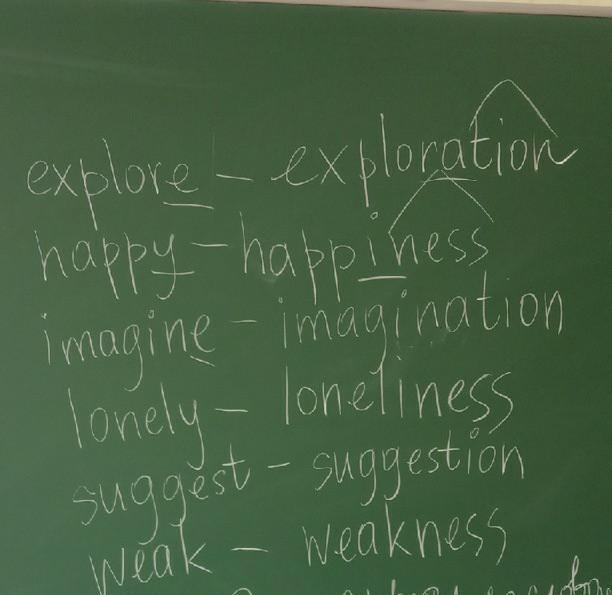 explore – exploration
happy – happiness
imagine – imagination
lonely – loneliness
suggest – suggestion
weak – weakness